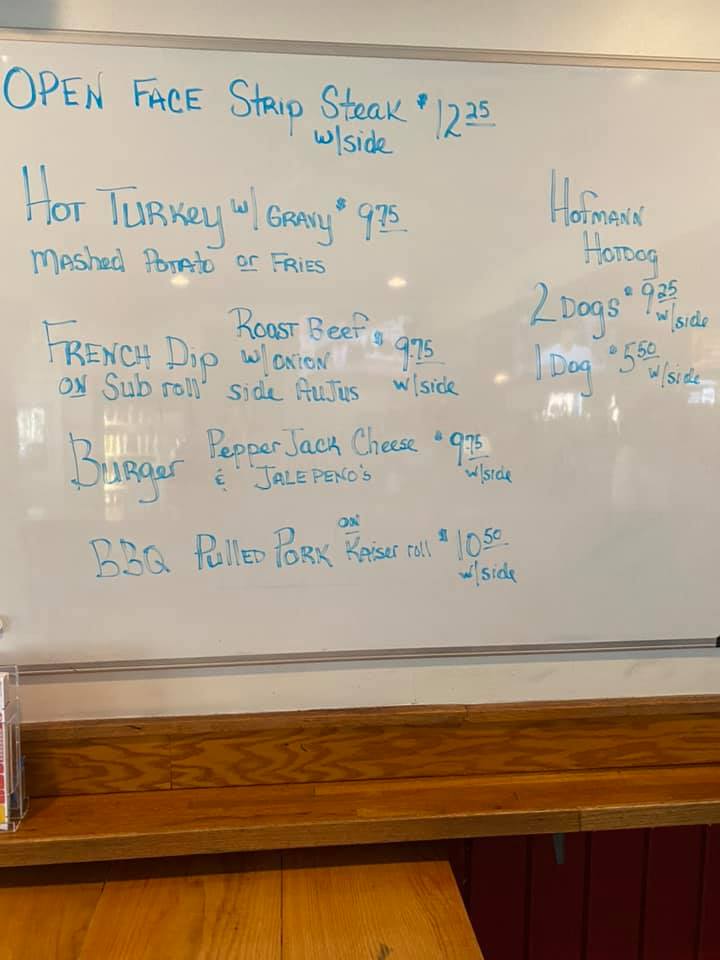 OPEN FACE STRIP STEAK $12 25
w/side
HOT TURKEY w/ GRAVY $ 9 75
MASHED POTATO OR FRIES
FRENCH DIP ROOST BEEF $ 9 75
w/ONION
ON SUB ROLL SIDE AUJUS w/side
BURGER PEPPER JACK CHEESE $ 9 75
& JALEPENO'S w/side
BBQ PULLED PORK ON KAISER ROLL $ 10 50
w/side
HOFMANN
HOTDOG
2 DOGS $ 9 25
w/side
1 DOG $ 5 50
w/side